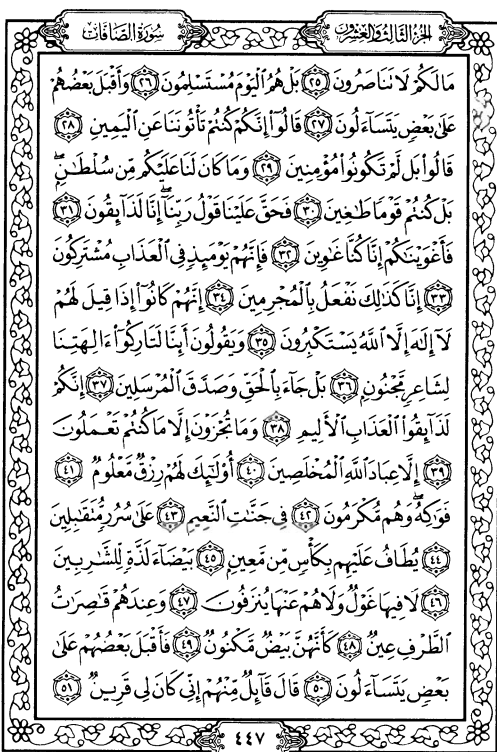 سُورَةُ الصَّافَّاتِ
الجُزْءُ الثَّالِثُ وَالعِشْرُونَ
مَا لَكُمْ لَا تَنَاصَرُونَ ٢٥ بَلْ هُمُ ٱلْيَوْمَ مُسْتَسْلِمُونَ ٢٦ وَأَقْبَلَ بَعْضُهُمْ
عَلَىٰ بَعْضٍ يَتَسَآءَلُونَ ٢٧ قَالُوٓا۟ إِنَّكُمْ كُنتُمْ تَأْتُونَنَا عَنِ ٱلْيَمِينِ ٢٨
قَالُوا۟ بَل لَّمْ تَكُونُوا۟ مُؤْمِنِينَ ٢٩ وَمَا كَانَ لَنَا عَلَيْكُم مِّن سُلْطَٰنٍۭ ۖ
بَلْ كُنتُمْ قَوْمًا طَٰغِينَ ٣٠ فَحَقَّ عَلَيْنَا قَوْلُ رَبِّنَآ ۖ إِنَّا لَذَآئِقُونَ ٣١
فَأَغْوَيْنَٰكُمْ إِنَّا كُنَّا غَٰوِينَ ٣٢ فَإِنَّهُمْ يَوْمَئِذٍ فِى ٱلْعَذَابِ مُشْتَرِكُونَ
٣٣ إِنَّا كَذَٰلِكَ نَفْعَلُ بِٱلْمُجْرِمِينَ ٣٤ إِنَّهُمْ كَانُوٓا۟ إِذَا قِيلَ لَهُمْ
لَآ إِلَٰهَ إِلَّا ٱللَّهُ يَسْتَكْبِرُونَ ٣٥ وَيَقُولُونَ أَئِنَّا لَتَارِكُوٓا۟ ءَالِهَتِنَا
لِشَاعِرٍ مَّجْنُونٍۭ ٣٦ بَلْ جَآءَ بِٱلْحَقِّ وَصَدَّقَ ٱلْمُرْسَلِينَ ٣٧ إِنَّكُمْ
لَذَآئِقُوا۟ ٱلْعَذَابِ ٱلْأَلِيمِ ٣٨ وَمَا تُجْزَوْنَ إِلَّا مَا كُنتُمْ تَعْمَلُونَ
٣٩ إِلَّا عِبَادَ ٱللَّهِ ٱلْمُخْلَصِينَ ٤٠ أُو۟لَٰٓئِكَ لَهُمْ رِزْقٌ مَّعْلُومٌ ٤١
فَوَٰكِهُ ۖ وَهُم مُّكْرَمُونَ ٤٢ فِى جَنَّٰتِ ٱلنَّعِيمِ ٤٣ عَلَىٰ سُرُرٍ مُّتَقَٰبِلِينَ
٤٤ يُطَافُ عَلَيْهِم بِكَأْسٍ مِّن مَّعِينٍۭ ٤٥ بَيْضَآءَ لَذَّةٍ لِّلشَّٰرِبِينَ
٤٦ لَا فِيهَا غَوْلٌ وَلَا هُمْ عَنْهَا يُنزَفُونَ ٤٧ وَعِندَهُمْ قَٰصِرَٰتُ
ٱلطَّرْفِ عِينٌ ٤٨ كَأَنَّهُنَّ بَيْضٌ مَّكْنُونٌ ٤٩ فَأَقْبَلَ بَعْضُهُمْ عَلَىٰ
بَعْضٍ يَتَسَآءَلُونَ ٥٠ قَالَ قَآئِلٌ مِّنْهُمْ إِنِّى كَانَ لِى قَرِينٌ ٥١
٤٤٧